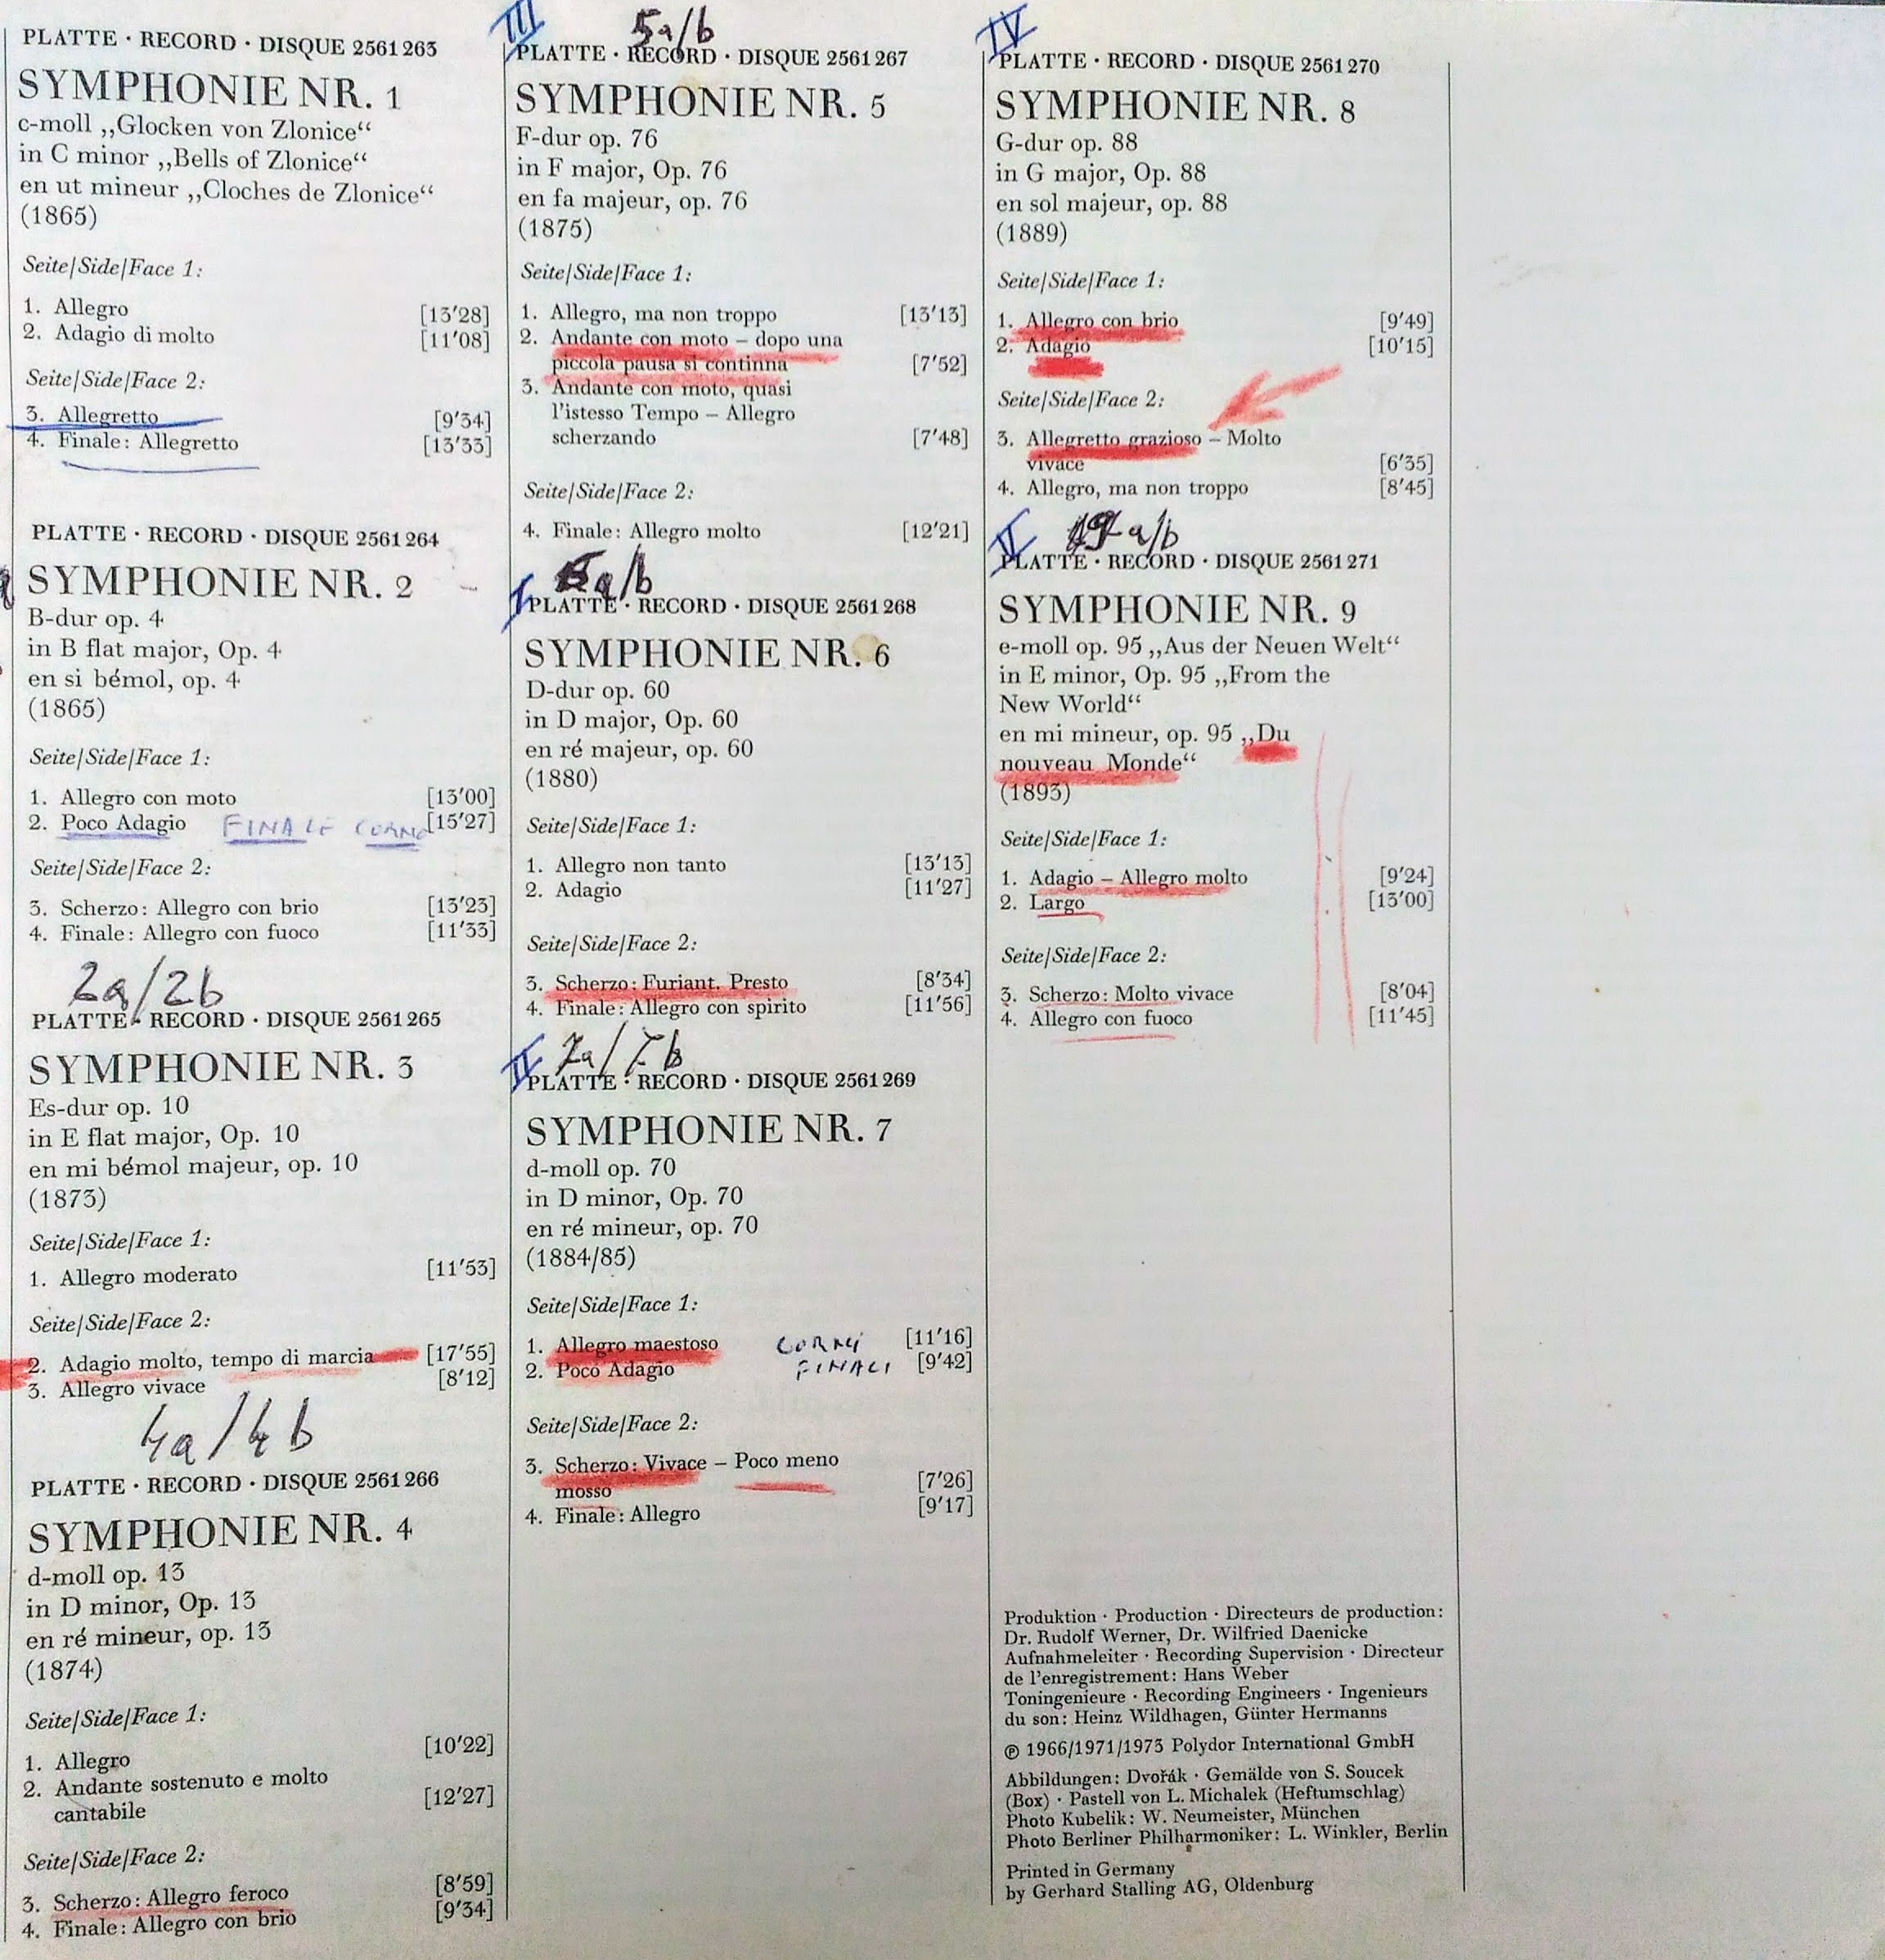 PLATTE · RECORD · DISQUE 2561263
SYMPHONIE NR. 1
c-moll „Glocken von Zlonice“
in C minor „Bells of Zlonice“
en ut mineur „Cloches de Zlonice“
(1865)
Seite/Side/Face 1:
1. Allegro [13′28]
2. Adagio di molto [11′08]
Seite/Side/Face 2:
3. Allegretto [9′34]
4. Finale: Allegretto [13′33]
PLATTE · RECORD · DISQUE 2561264
SYMPHONIE NR. 2
B-dur op. 4
in B flat major, Op. 4
en si bémol, op. 4
(1865)
Seite/Side/Face 1:
1. Allegro con moto [13′00]
2. Poco Adagio FINALE CORNO [15′27]
Seite/Side/Face 2:
3. Scherzo: Allegro con brio [13′23]
4. Finale: Allegro con fuoco [11′33]
2a/2b
PLATTE · RECORD · DISQUE 2561265
SYMPHONIE NR. 3
Es-dur op. 10
in E flat major, Op. 10
en mi bémol majeur, op. 10
(1873)
Seite/Side/Face 1:
1. Allegro moderato [11′53]
Seite/Side/Face 2:
2. Adagio molto, tempo di marcia [17′55]
3. Allegro vivace [8′12]
4a/4b
PLATTE · RECORD · DISQUE 2561266
SYMPHONIE NR. 4
d-moll op. 13
in D minor, Op. 13
en ré mineur, op. 13
(1874)
Seite/Side/Face 1:
1. Allegro [10′22]
2. Andante sostenuto e molto
cantabile [12′27]
Seite/Side/Face 2:
3. Scherzo: Allegro feroco [8′59]
4. Finale: Allegro con brio [9′34]
III 5a/b
PLATTE · RECORD · DISQUE 2561267
SYMPHONIE NR. 5
F-dur op. 76
in F major, Op. 76
en fa majeur, op. 76
(1875)
Seite/Side/Face 1:
1. Allegro, ma non troppo [13′13]
2. Andante con moto – dopo una
piccola pausa si continna [7′52]
3. Andante con moto, quasi
l’istesso Tempo – Allegro
scherzando [7′48]
Seite/Side/Face 2:
4. Finale: Allegro molto [12′21]
I 6a/b
PLATTE · RECORD · DISQUE 2561268
SYMPHONIE NR. 6
D-dur op. 60
in D major, Op. 60
en ré majeur, op. 60
(1880)
Seite/Side/Face 1:
1. Allegro non tanto [13′13]
2. Adagio [11′27]
Seite/Side/Face 2:
3. Scherzo: Furiant. Presto [8′34]
4. Finale: Allegro con spirito [11′56]
II 7a/7b
PLATTE · RECORD · DISQUE 2561269
SYMPHONIE NR. 7
d-moll op. 70
in D minor, Op. 70
en ré mineur, op. 70
(1884/85)
Seite/Side/Face 1:
1. Allegro maestoso CORNI [11′16]
2. Poco Adagio FINALI [9′42]
Seite/Side/Face 2:
3. Scherzo: Vivace – Poco meno
mosso [7′26]
4. Finale: Allegro [9′17]
IV
PLATTE · RECORD · DISQUE 2561270
SYMPHONIE NR. 8
G-dur op. 88
in G major, Op. 88
en sol majeur, op. 88
(1889)
Seite/Side/Face 1:
1. Allegro con brio [9′49]
2. Adagio [10′15]
Seite/Side/Face 2:
3. Allegretto grazioso – Molto
vivace [6′35]
4. Allegro, ma non troppo [8′45]
V a/b
PLATTE · RECORD · DISQUE 2561271
SYMPHONIE NR. 9
e-moll op. 95 „Aus der Neuen Welt“
in E minor, Op. 95 „From the
New World“
en mi mineur, op. 95 „Du
nouveau Monde“
(1893)
Seite/Side/Face 1:
1. Adagio – Allegro molto [9′24]
2. Largo [13′00]
Seite/Side/Face 2:
3. Scherzo: Molto vivace [8′04]
4. Allegro con fuoco [11′45]
Produktion · Production · Directeurs de production:
Dr. Rudolf Werner, Dr. Wilfried Daenicke
Aufnahmeleiter · Recording Supervision · Directeur
de l’enregistrement: Hans Weber
Toningenieure · Recording Engineers · Ingenieurs
du son: Heinz Wildhagen, Günter Hermanns
℗ 1966/1971/1973 Polydor International GmbH
Abbildungen: Dvořák · Gemälde von S. Soucek
(Box) · Pastell von L. Michalek (Heftumschlag)
Photo Kubelik: W. Neumeister, München
Photo Berliner Philharmoniker: L. Winkler, Berlin
Printed in Germany
by Gerhard Stalling AG, Oldenburg